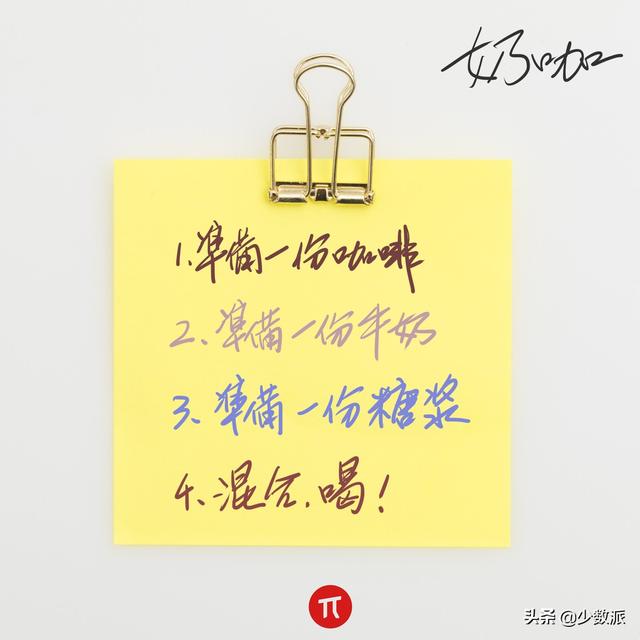 奶咖
1.準備一份咖啡
2、準備一份牛奶
3、準備一份糖浆
4、混合、喝!
π
头条 @少数派